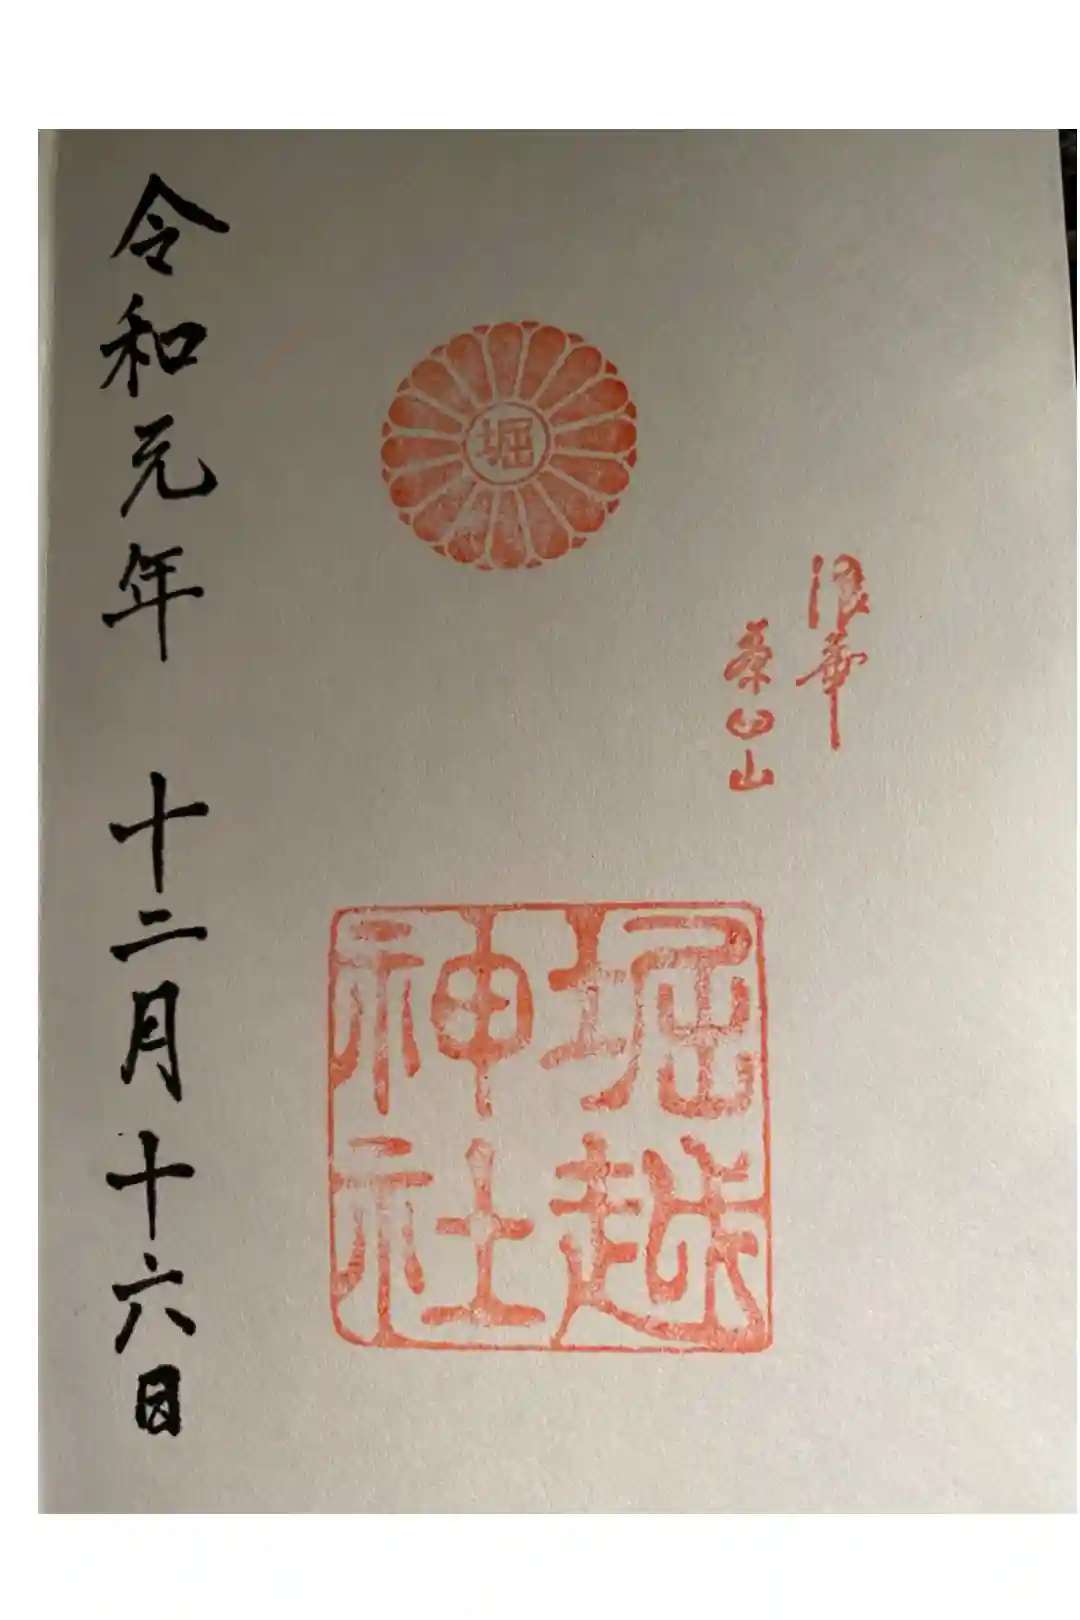 浪華
茶臼山
堀
堀越
神社
令和元年 十二月十六日